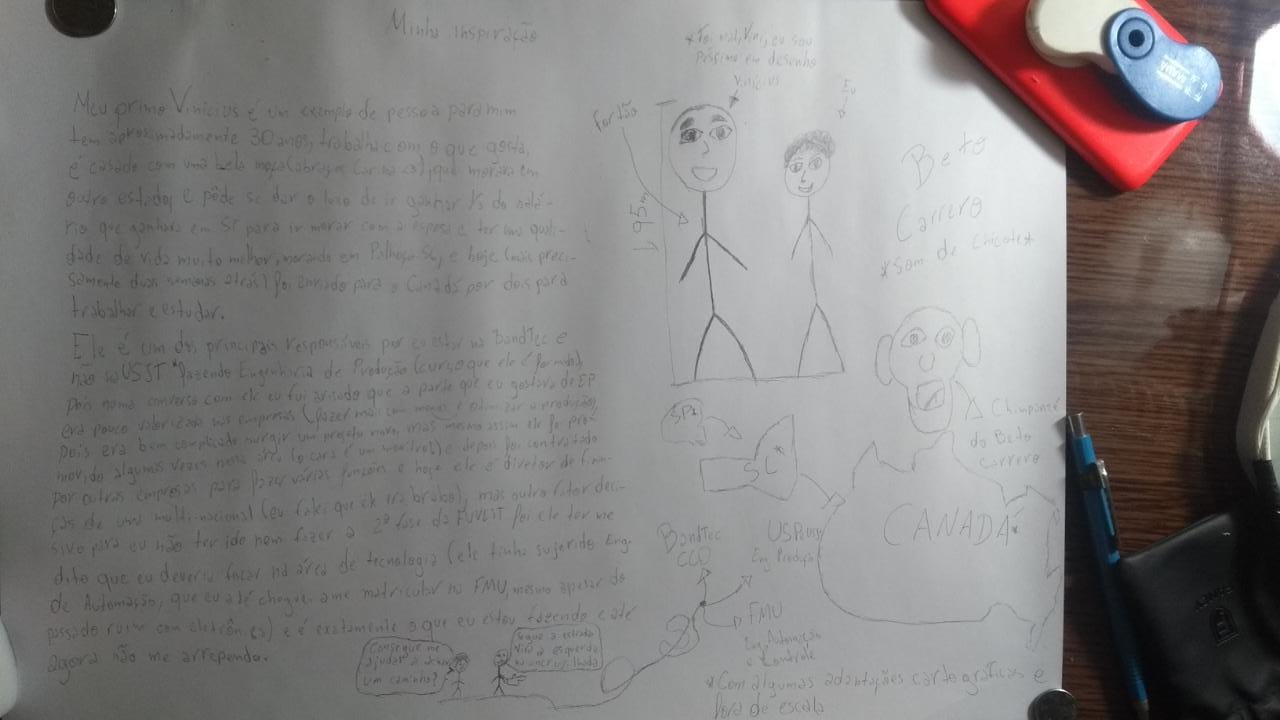 Minha inspiração
Meu primo Vinicius é um exemplo de pessoa para mim
tem aproximadamente 30 anos, trabalha com o que gosta,
é casado com uma bela moça (abraços Carina <3), que morava em
outro estado, e pôde se dar o luxo de ir ganhar do salá-
rio que ganhava em SP para ir morar com a esposa e ter uma quali-
dade de vida muito melhor, morando em Palhoça-SC, e hoje (mais preci-
samente duas semanas atrás) foi enviado para o Canadá por dois para
trabalhar e estudar.
Ele é um dos principais responsáveis por eu estar na BandTec e
não na fazendo Engenharia de Produção (curso que ele é formado),
pois numa conversa com ele eu fui avisado que a parte que eu gostava de EP
era pouco valorizada nas empresas (fazer mais com menos e otimizar a produção)
pois era bem complicado surgir um projeto novo, mas mesmo assim ele foi pro-
movido algumas vezes nessa área (o cara é um monstro!) e depois foi contratado
por outras empresas para fazer várias funções e hoje ele é diretor de finan-
ças de uma multi-nacional (eu falei que ele era brabo), mas outro fator deci-
sivo para eu não ter ido nem fazer a 2ª fase da FUVEST foi ele ter me
dito que eu deveria focar na área de tecnologia (ele tinha sugerido Eng.
de Automação, que eu até cheguei a me matricular na FMU, mesmo apesar do
passado ruim com eletrônica) e é exatamente o que eu estou fazendo e até
agora não me arrependo.
*Foi mal, Vini, eu sou
péssimo em desenho
Vinicius
Eu
Fortão
1,95m
Beto
Carrero
*Som de Chicote*
Chimpanzé
do Beto
Carrero
SP*
SC*
CANADÁ*
BandTec
CCO
USP
Eng. Produção
FMU
Eng. Automação
e Controle
Consegue me
ajudar a achar
um caminho?
Segue a estrada
vira a esquerda
na encruzilhada
*Com algumas adaptações cartográficas e
fora de escala